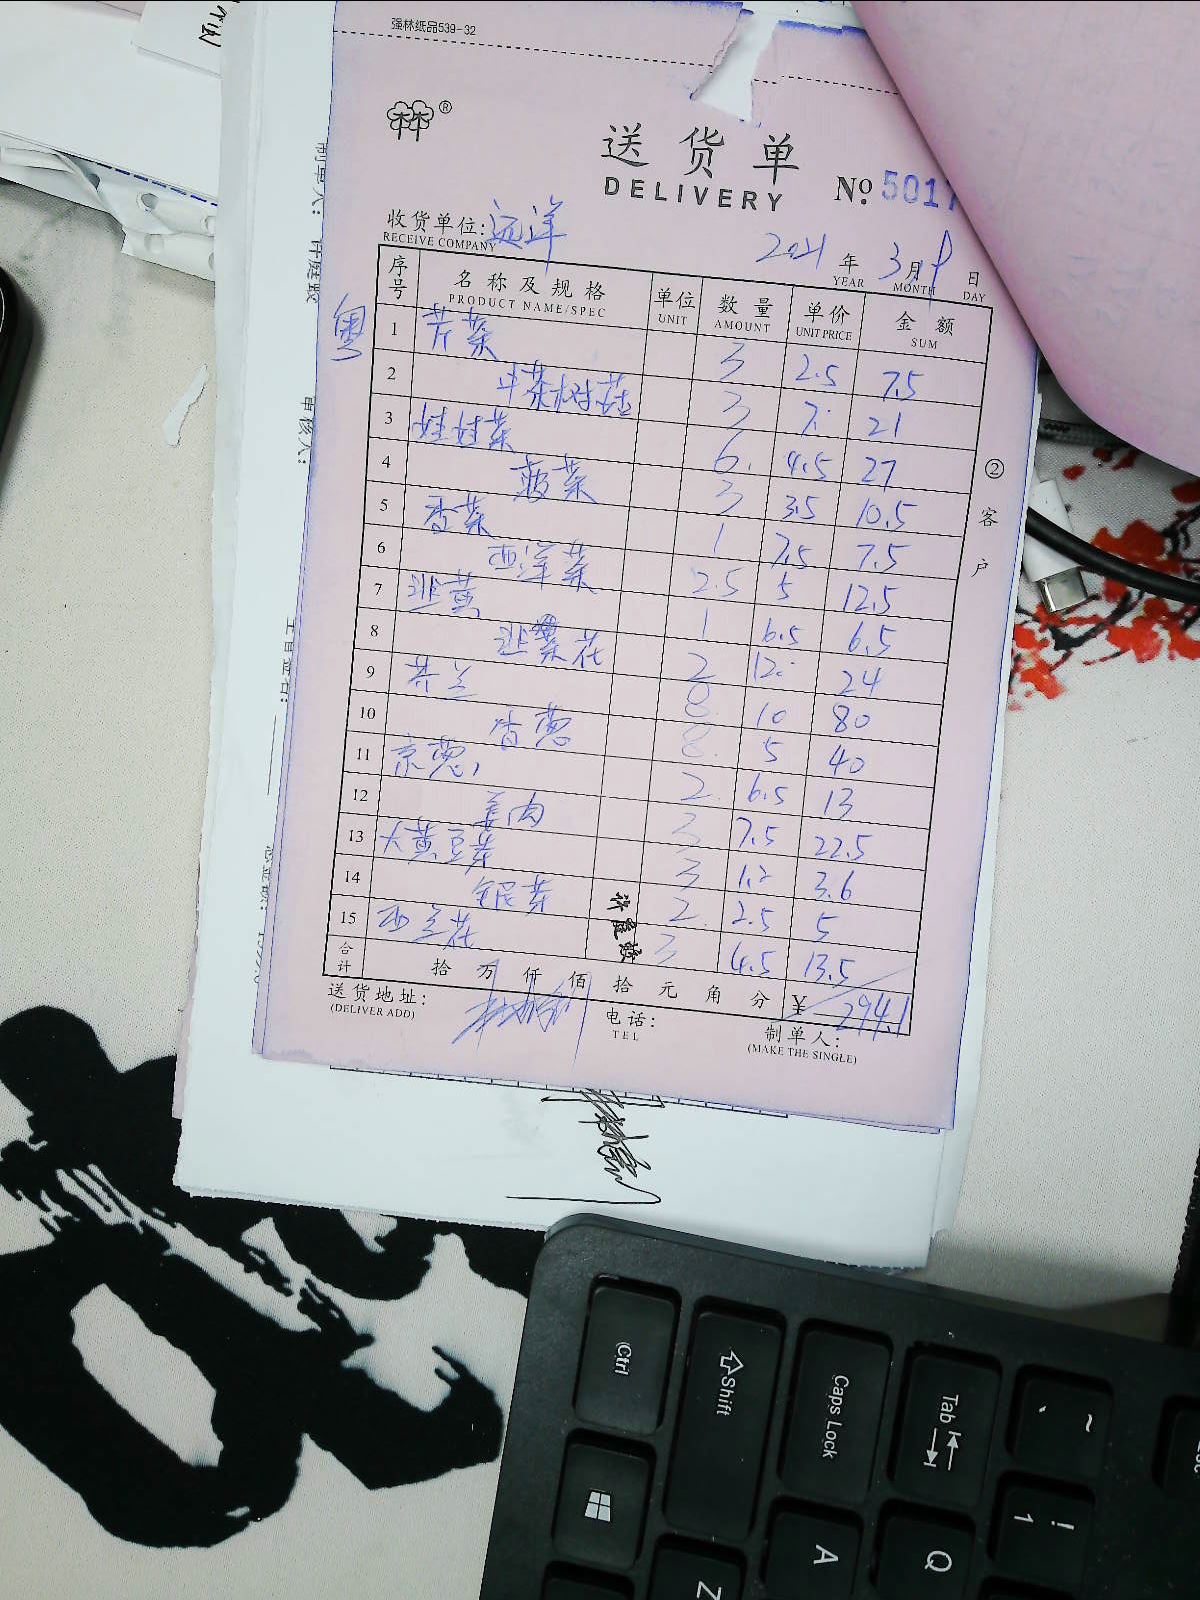 强林纸品539-32
林林®
送货单
DELIVERY
No. 5017
收货单位: 远洋
RECEIVE COMPANY
2021 年 3 月 9 日
YEAR MONTH DAY
序号 名称及规格 单位 数量 单价 金额
PRODUCT NAME/SPEC UNIT AMOUNT UNIT PRICE SUM
粤
1 芹菜 3 2.5 7.5
2 茶树菇 3 7. 21
3 娃娃菜 6. 4.5 27
4 菠菜 3 3.5 10.5
5 香菜 1 7.5 7.5
6 西洋菜 2.5 5 12.5
7 韭黄 1 6.5 6.5
8 韭菜花 2 12. 24
9 芥兰 8. 10 80
10 香葱 8. 5 40
11 京葱 2. 6.5 13
12 姜肉 3 7.5 22.5
13 大黄豆芽 3 1.2 3.6
14 银芽 2. 2.5 5
15 西兰花 3 4.5 13.5
合计 拾 万 仟 佰 拾 元 角 分 ¥ 294.1
送货地址:
(DELIVER ADD)
电话:
TEL
制单人:
(MAKE THE SINGLE)
②客户
制单人: 许庭毅
审核人:
Ctrl
Shift
Caps Lock
Tab
~
`
!
1
A
Q
Z